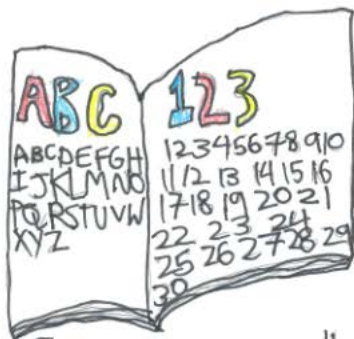 ABC
ABCDEFGH
IJKLMNO
PQRSTUVW
XYZ
123
12345678910
11 12 13 14 15 16
17 18 19 20 21
22 23 24
25 26 27 28 29
30